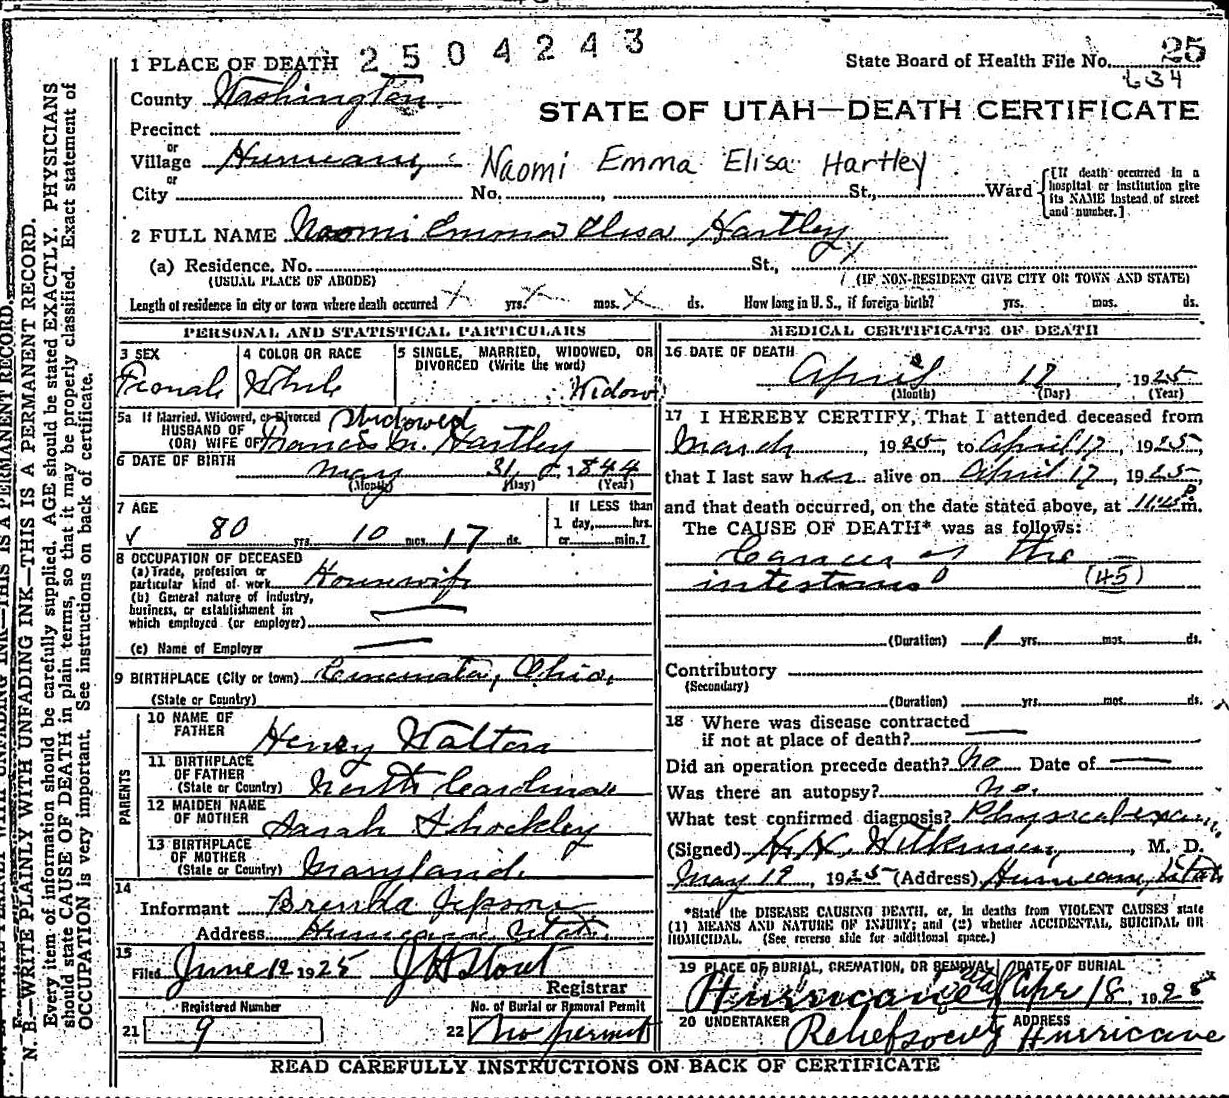 2504243
1 PLACE OF DEATH
State Board of Health File No. 25
634
County Washington
STATE OF UTAH—DEATH CERTIFICATE
Precinct
or
Village Hurricane
Naomi Emma Elisa Hartley
or
City No. St., Ward
[If death occurred in a hospital or institution give its NAME instead of street and number.]
2 FULL NAME Naomi Emma Elisa Hartley
(a) Residence. No. St.,
(USUAL PLACE OF ABODE) (IF NON-RESIDENT GIVE CITY OR TOWN AND STATE)
Length of residence in city or town where death occurred X yrs. X mos. X ds. How long in U. S., if foreign birth? yrs. mos. ds.
PERSONAL AND STATISTICAL PARTICULARS
3 SEX
Female
4 COLOR OR RACE
White
5 SINGLE, MARRIED, WIDOWED, OR DIVORCED (Write the word)
Widow
5a If Married, Widowed, or Divorced Widowed
HUSBAND OF
(OR) WIFE OF Francis M. Hartley
6 DATE OF BIRTH May 31, 1844
(Month) (Day) (Year)
7 AGE
80 yrs. 10 mos. 17 ds.
If LESS than
1 day, hrs.
or min.?
8 OCCUPATION OF DECEASED
(a) Trade, profession or
particular kind of work Housewife
(b) General nature of industry,
business, or establishment in
which employed (or employer)
(c) Name of Employer
9 BIRTHPLACE (City or town) Cincinnati, Ohio.
(State or Country)
PARENTS
10 NAME OF FATHER Henry Walters
11 BIRTHPLACE OF FATHER
(State or Country) North Carolina
12 MAIDEN NAME OF MOTHER Sarah Shockley
13 BIRTHPLACE OF MOTHER
(State or Country) Maryland.
14
Informant Brenda Jepson
Address Hurricane Utah.
15
Filed June 12 1925 J H Stout
Registrar
Registered Number
21 9
No. of Burial or Removal Permit
22 No permit
MEDICAL CERTIFICATE OF DEATH
16 DATE OF DEATH
April 17, 1925
(Month) (Day) (Year)
17 I HEREBY CERTIFY, That I attended deceased from
March 1925, to April 17, 1925,
that I last saw her alive on April 17, 1925,
and that death occurred, on the date stated above, at 11:45 P m.
The CAUSE OF DEATH* was as follows:
Cancer of the
intestines (45)
(Duration) 1 yrs. mos. ds.
Contributory
(Secondary)
(Duration) yrs. mos. ds.
18 Where was disease contracted
if not at place of death?
Did an operation precede death? No Date of
Was there an autopsy? No.
What test confirmed diagnosis? Physical exam
(Signed) Wilkinson, M. D.
May 19, 1925 (Address) Hurricane, Utah
*State the DISEASE CAUSING DEATH, or, in deaths from VIOLENT CAUSES state
(1) MEANS AND NATURE OF INJURY; and (2) whether ACCIDENTAL, SUICIDAL OR
HOMICIDAL. (See reverse side for additional space.)
19 PLACE OF BURIAL, CREMATION, OR REMOVAL
Hurricane Utah
DATE OF BURIAL
Apr 18, 1925
20 UNDERTAKER Relief society
ADDRESS Hurricane
READ CAREFULLY INSTRUCTIONS ON BACK OF CERTIFICATE
N. B.—WRITE PLAINLY WITH UNFADING INK—THIS IS A PERMANENT RECORD.
Every item of information should be carefully supplied. AGE should be stated EXACTLY. PHYSICIANS
should state CAUSE OF DEATH in plain terms, so that it may be properly classified. Exact statement of
OCCUPATION is very important. See instructions on back of certificate.